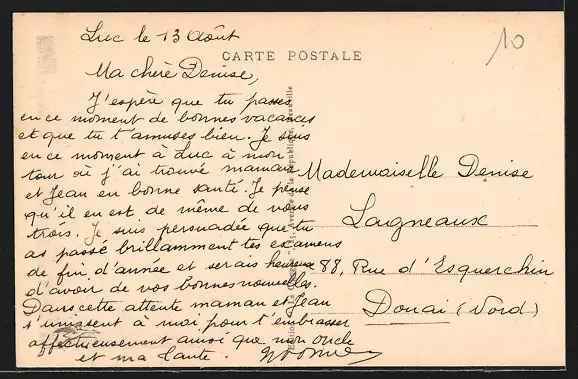 Luc le 13 Août
10
CARTE POSTALE
Ma chère Denise,
J'espère que tu passes
en ce moment de bonnes vacances
et que tu t'amuses bien. Je suis
en ce moment à Luc à mon
tour où j'ai trouvé maman
et Jean en bonne santé. Je pense
qu'il en est de même de vous
trois. Je suis persuadée que tu
as passé brillamment tes examens
de fin d'année et serais heureuse
d'avoir de vos bonnes nouvelles.
Dans cette attente maman et Jean
s'unissent à moi pour t'embrasser
affectueusement ainsi que mon oncle
et ma tante. Yvonne
Mademoiselle Denise
Lagneaux
88, Rue d'Esquerchin
Douai (Nord)
Avenue de la République